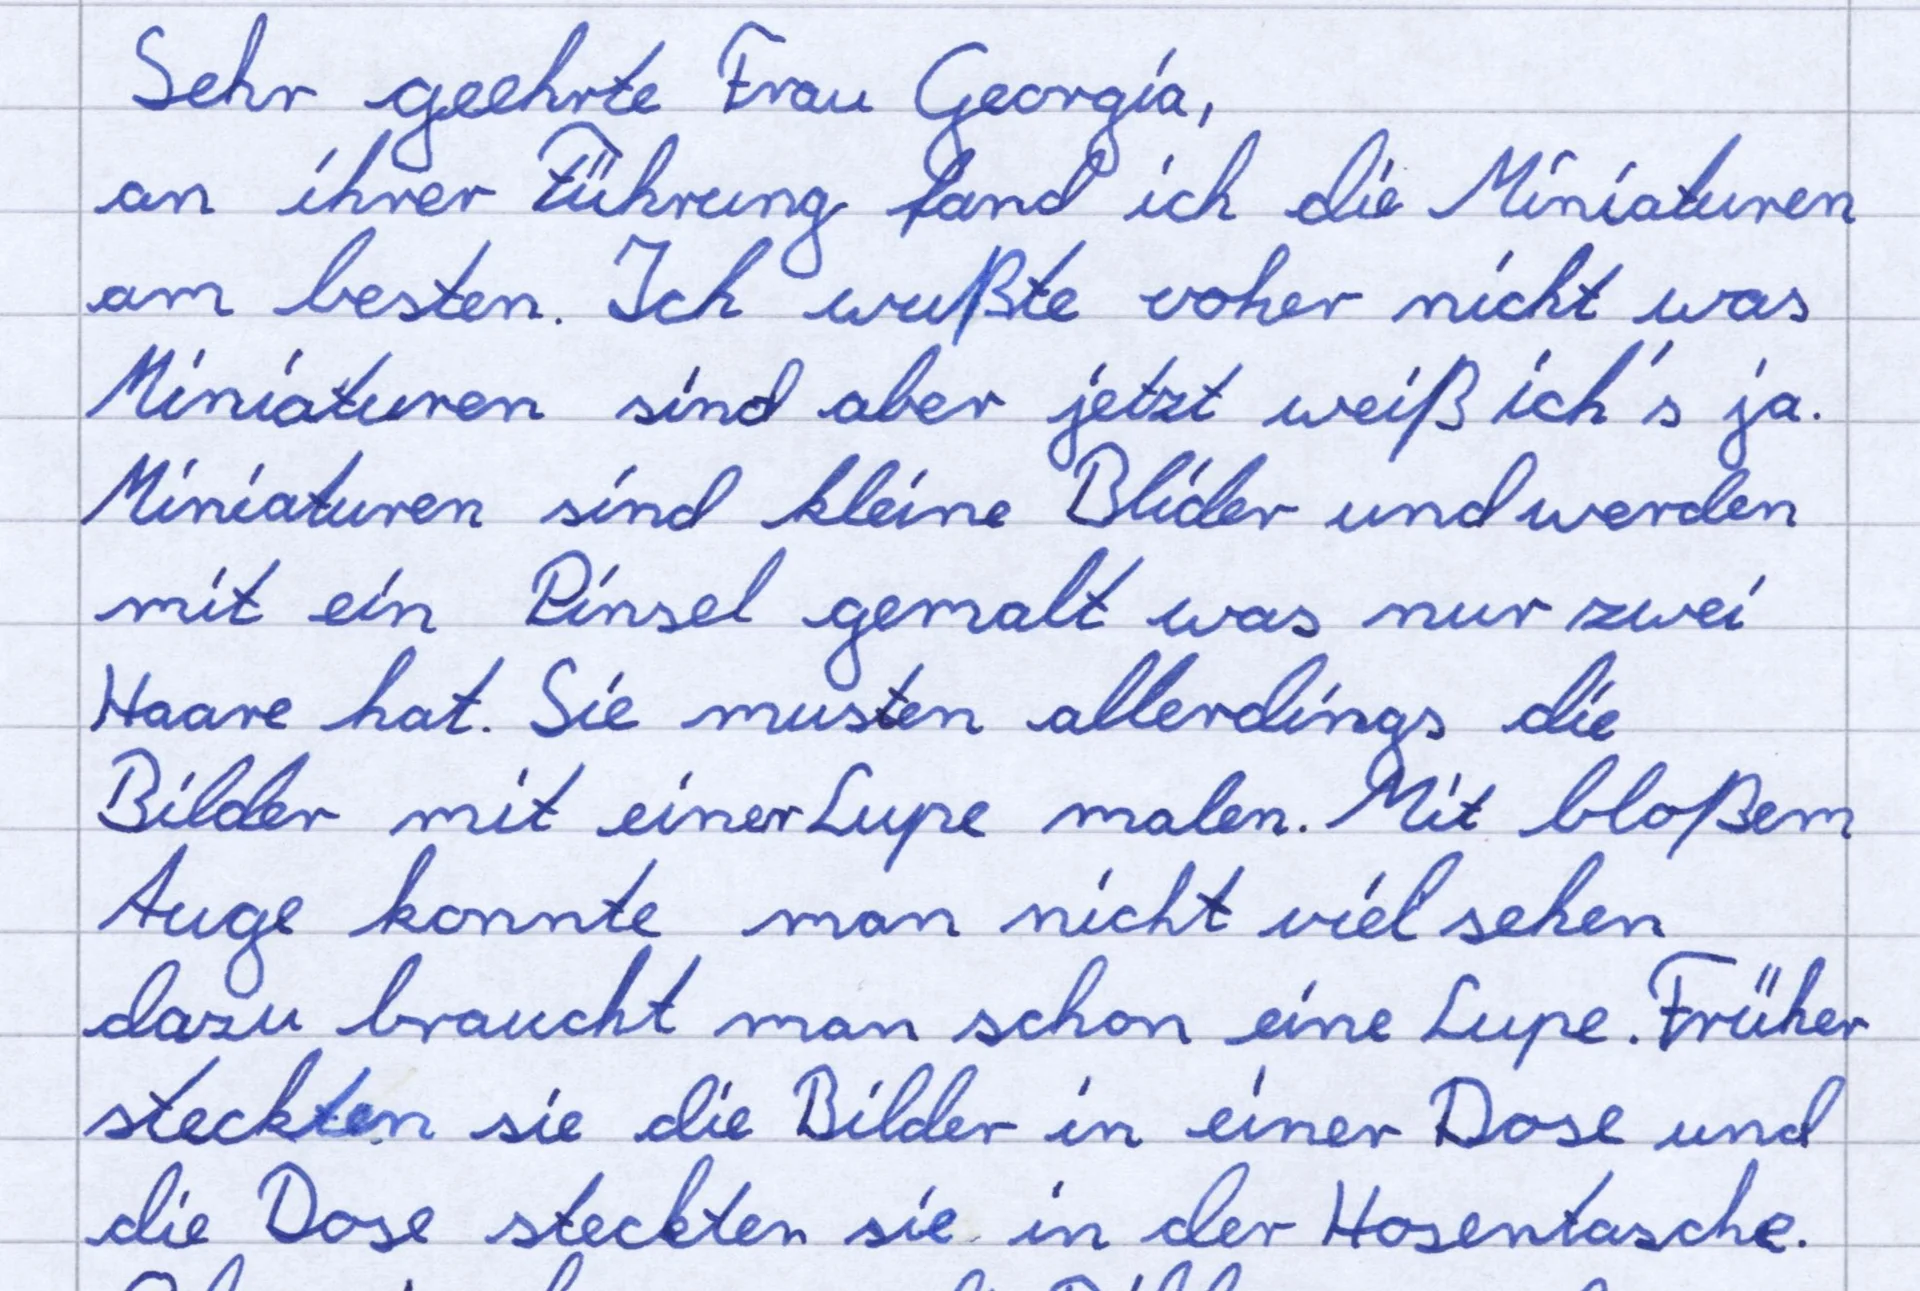 Sehr geehrte Frau Georgia,
an ihrer Führung fand ich die Miniaturen
am besten. Ich wußte voher nicht was
Miniaturen sind aber jetzt weiß ich's ja.
Miniaturen sind kleine Blider und werden
mit ein Pinsel gemalt was nur zwei
Haare hat. Sie musten allerdings die
Bilder mit einer Lupe malen. Mit bloßem
Auge konnte man nicht viel sehen
dazu braucht man schon eine Lupe. Früher
steckten sie die Bilder in einer Dose und
die Dose steckten sie in der Hosentasche.